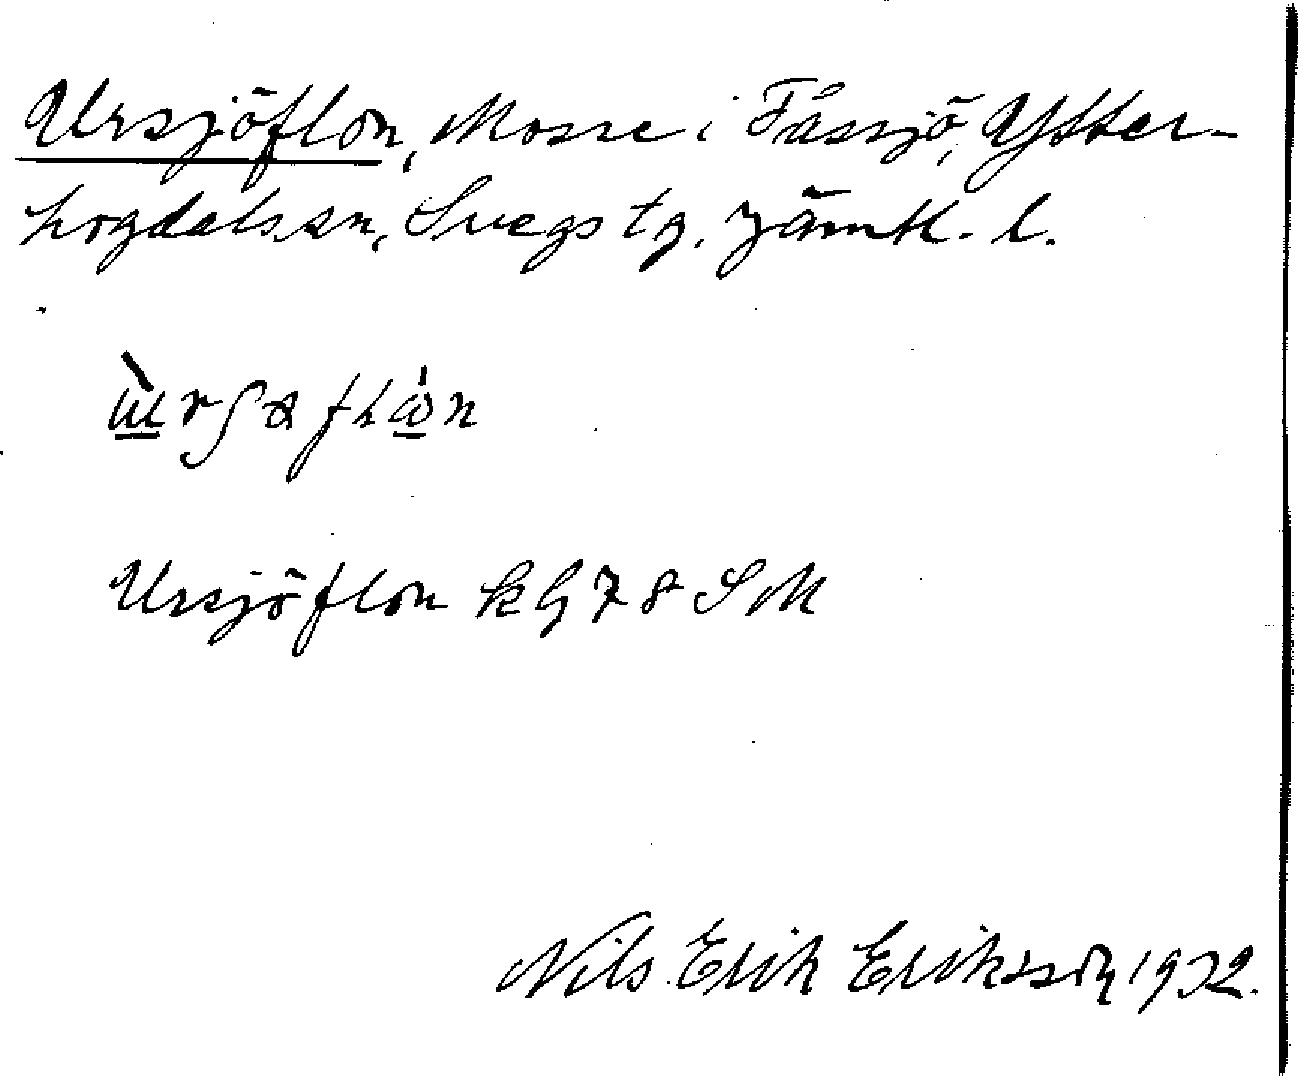 Ursjöflon, Mosse i Fåssjö, Ytter-
hogdals sn, Svegs tg. Jämtl. l.
Ursjöflon k G 78 S M
Nils Erik Eriksson 1932.